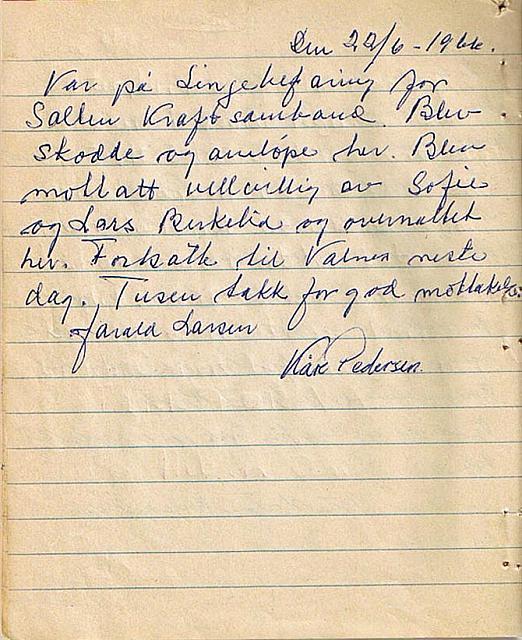 Den 22/6 - 1966.
Var på Lingebefaring for
Salten Kraftsamband. Blev
skodde og anløpe her. Blev
mottatt velvillig av Sofie
og Lars Birkelid og overnattet
her. Forksatk til Valnes neste
dag. Tusen takk for god mottakelse.
Harald Larsen
Kåre Pedersen.